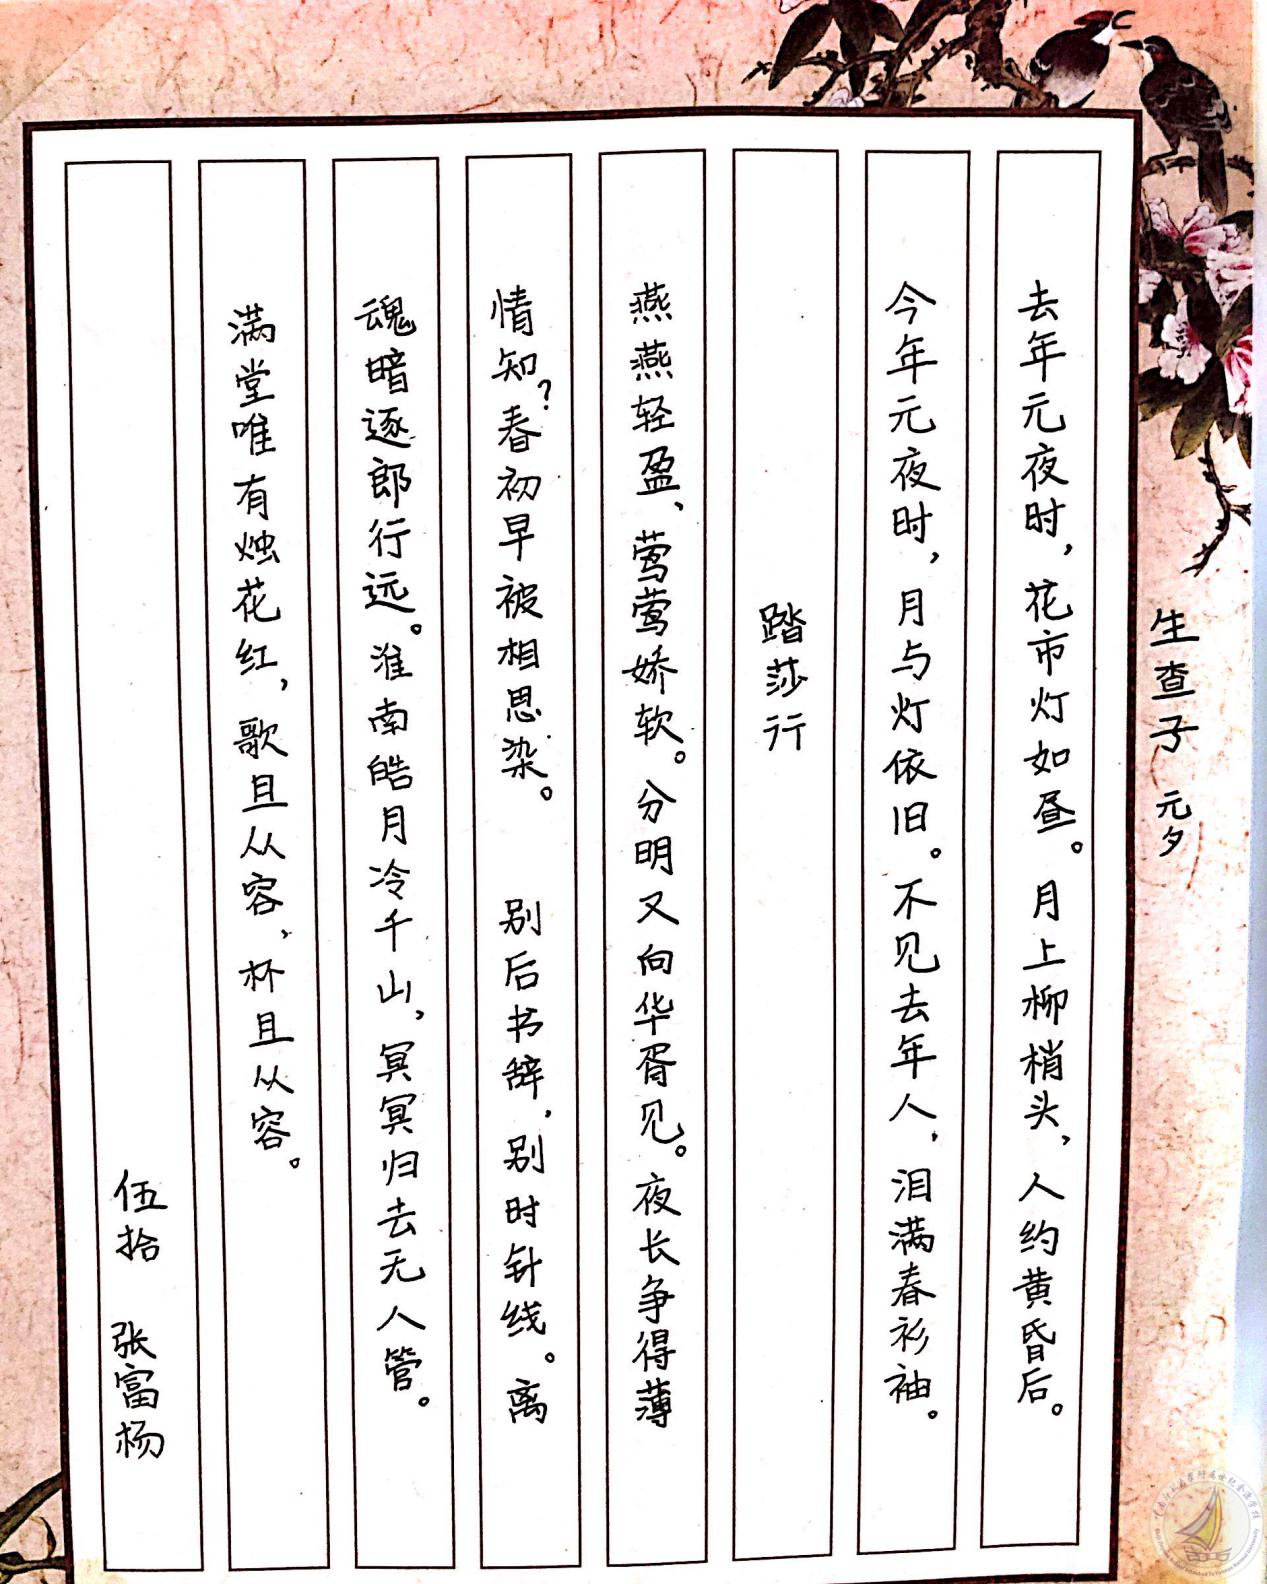 生查子 元夕
去年元夜时，花市灯如昼。月上柳梢头，人约黄昏后。
今年元夜时，月与灯依旧。不见去年人，泪满春衫袖。
踏莎行
燕燕轻盈、莺莺娇软。分明又向华胥见。夜长争得薄
情知？春初早被相思染。 别后书辞，别时针线。离
魂暗逐郎行远。淮南皓月冷千山，冥冥归去无人管。
满堂唯有烛花红，歌且从容，杯且从容。
伍拾 张富杨